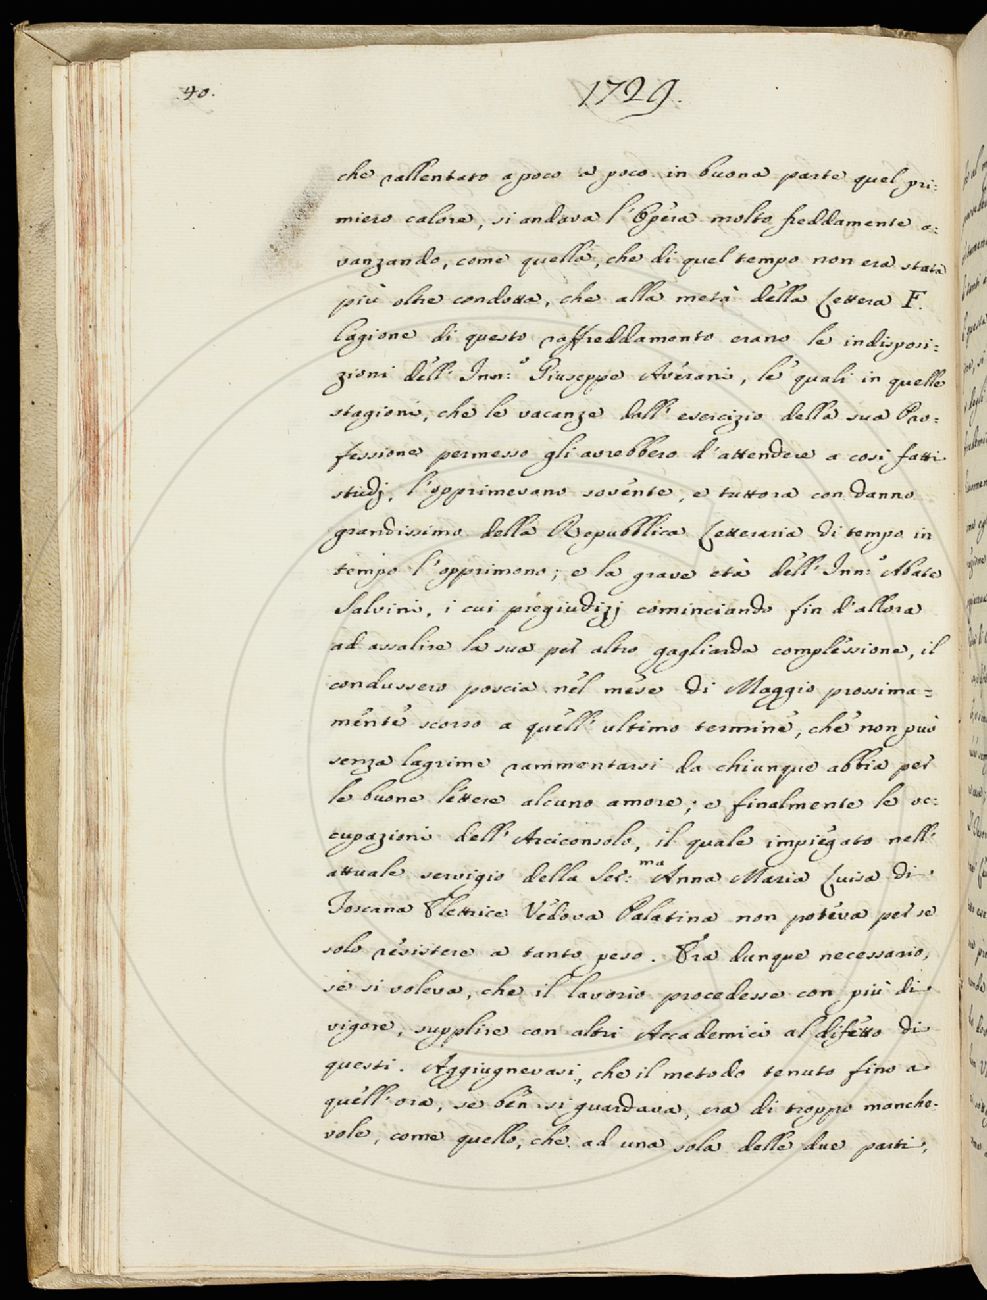 40.
1729.
che rallentato a poco a poco in buona parte quel pri:
miero calore, si andava l'Opera molto freddamente a:
vanzando, come quella, che di quel tempo non era stata
più oltre condotta, che alla metà della Lettera F.
Cagione di questo raffreddamento erano le indisposi:
zioni dell' Inn:o Giuseppe Averani, le quali in quelle
stagioni, che le vacanze dall' esercizio della sua Pro:
fessione permesso gli avrebbero d'attendere a così fatti
studj, l'opprimevano sovente, e tuttora con danno
grandissimo della Repubblica Letteraria di tempo in
tempo l'opprimono; e la grave età dell' Inn:o Abate
Salvini, i cui pregiudizj cominciando fin d'allora
ad assalire la sua per altro gagliarda complessione, il
condussero poscia nel mese di Maggio prossima=
mente scorso a quell' ultimo termine, che non può
senza lagrime rammentarsi da chiunque abbia per
le buone lettere alcuno amore; e finalmente le oc:
cupazioni dell' Arciconsolo, il quale impiegato nell'
attuale servigio della Ser:ma Anna Maria Luisa di
Toscana Elettrice Vedova Palatina non poteva per se
solo resistere a tanto peso. Era dunque necessario,
se si voleva, che il lavorio procedesse con più di
vigore, supplire con altri Accademici al difetto di
questi. Aggiugnevasi, che il metodo tenuto fino a
quell' ora, se ben si guardava, era di troppo manche:
vole, come quello, che ad una sola delle due parti,